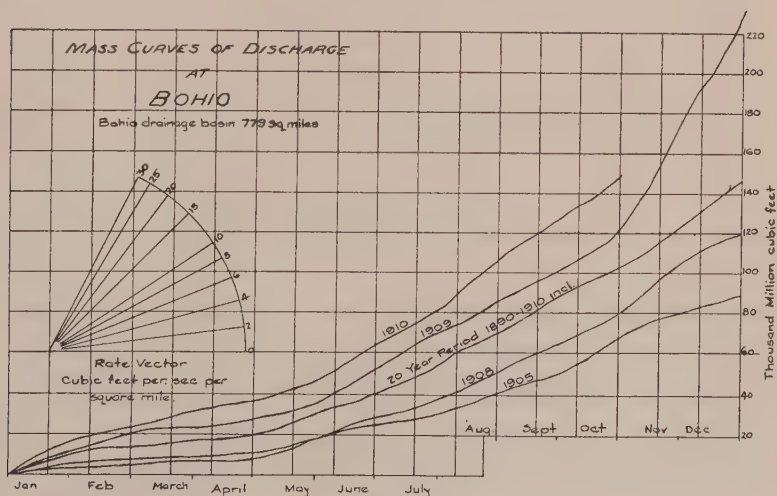 MASS CURVES OF DISCHARGE
AT
BOHIO
Bohio drainage basin 779 sq. miles
30
25
20
15
10
8
6
4
2
0
Rate Vector
Cubic feet per. sec per
square mile.
1910
1909
20 Year Period 1890-1910 incl.
1908
1905
220
200
180
160
140
120
100
80
60
40
20
Thousand Million cubic feet
Aug. Sept Oct Nov Dec
Jan Feb March April May June July